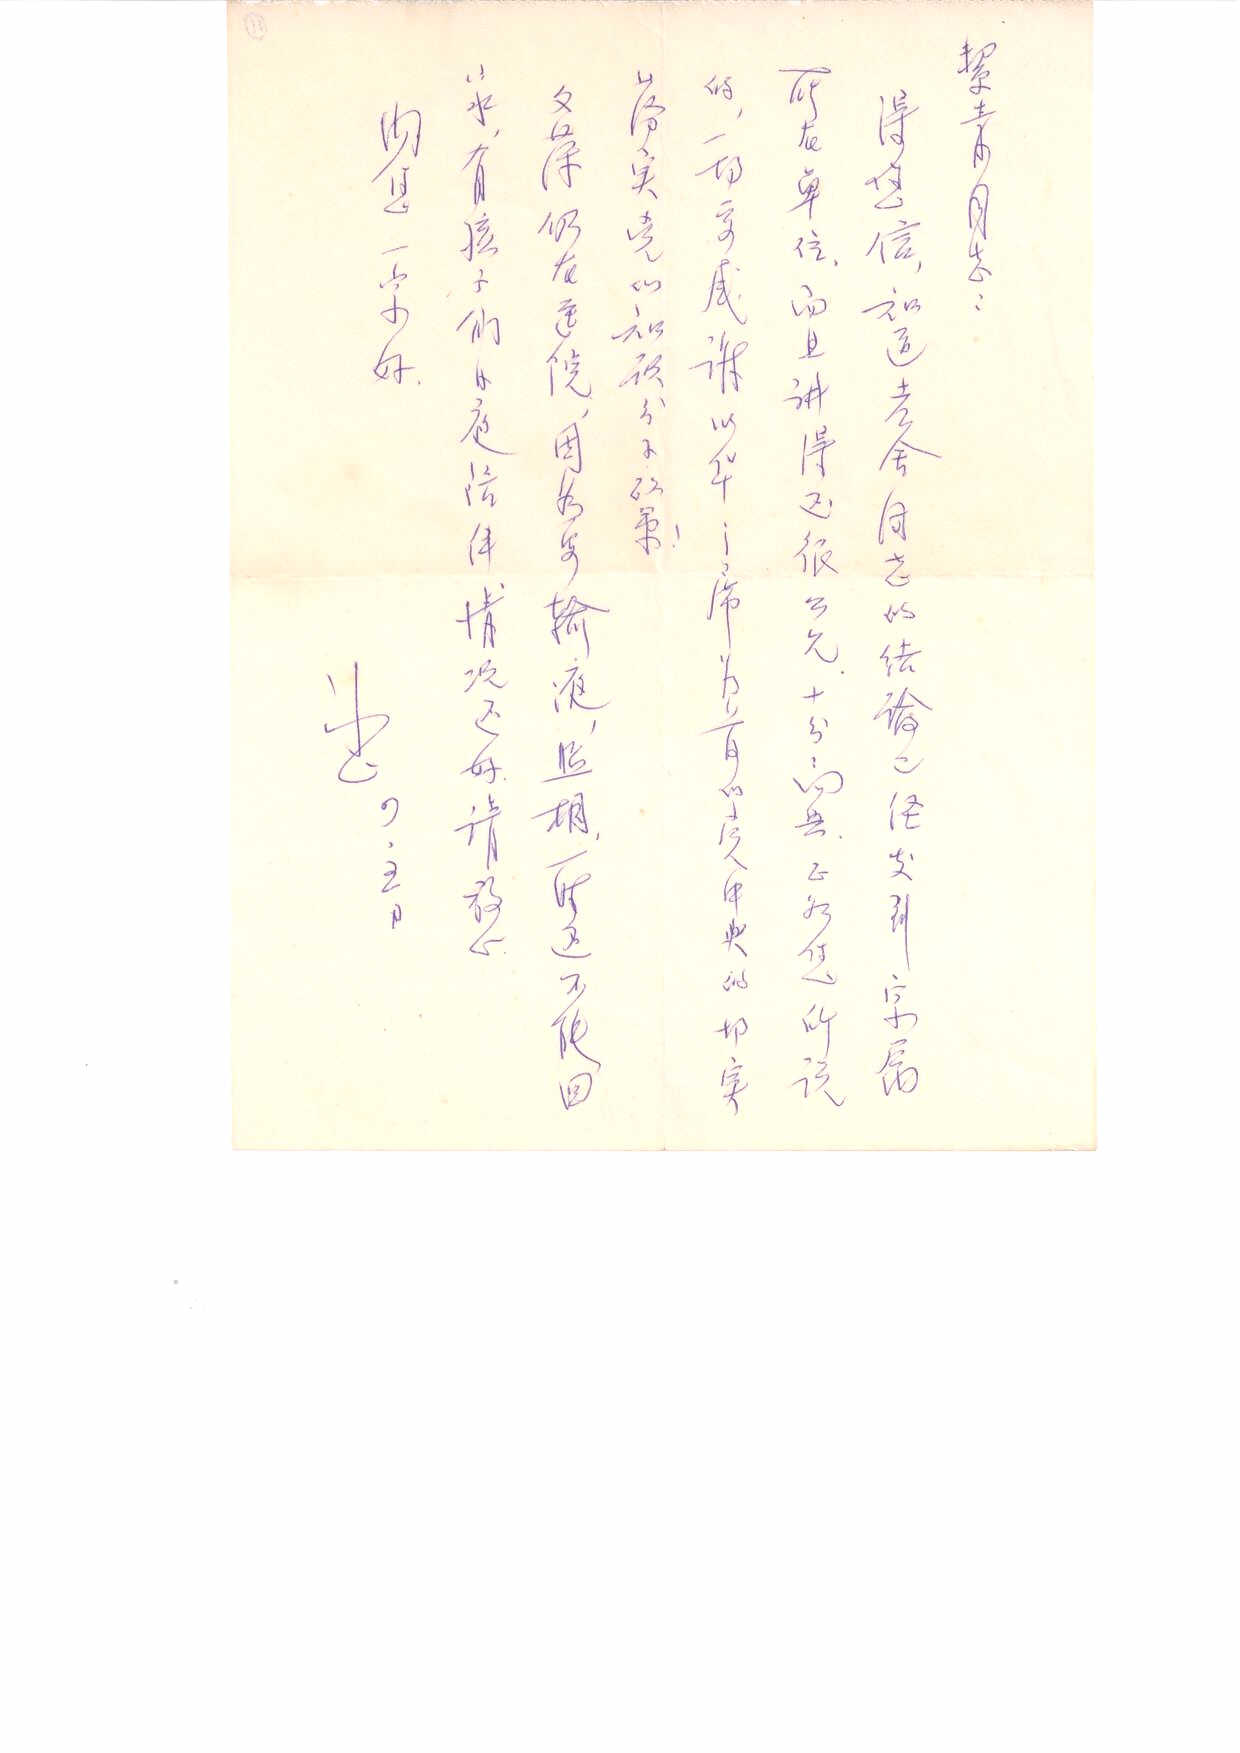 絜青同志：
得您信，知道老舍同志的结论已经发到家属
所在单位，而且讲得还很公允．十分高兴．正如您所说
的，一切要感谢以华主席为首的党中央的切实
落实党的知识分子政策！
文藻仍在医院，因为要输液，照相，一时还不能回
家，有孩子们日夜陪伴情况还好．请放心．
问您一家好．
冰心 四．五日